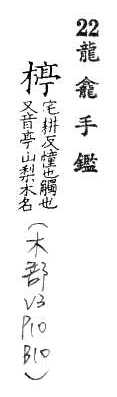 22龍龕手鑑
樗
宅耕反憧也觸也
又音亭山梨木名
(木部
V3
P10
B10)